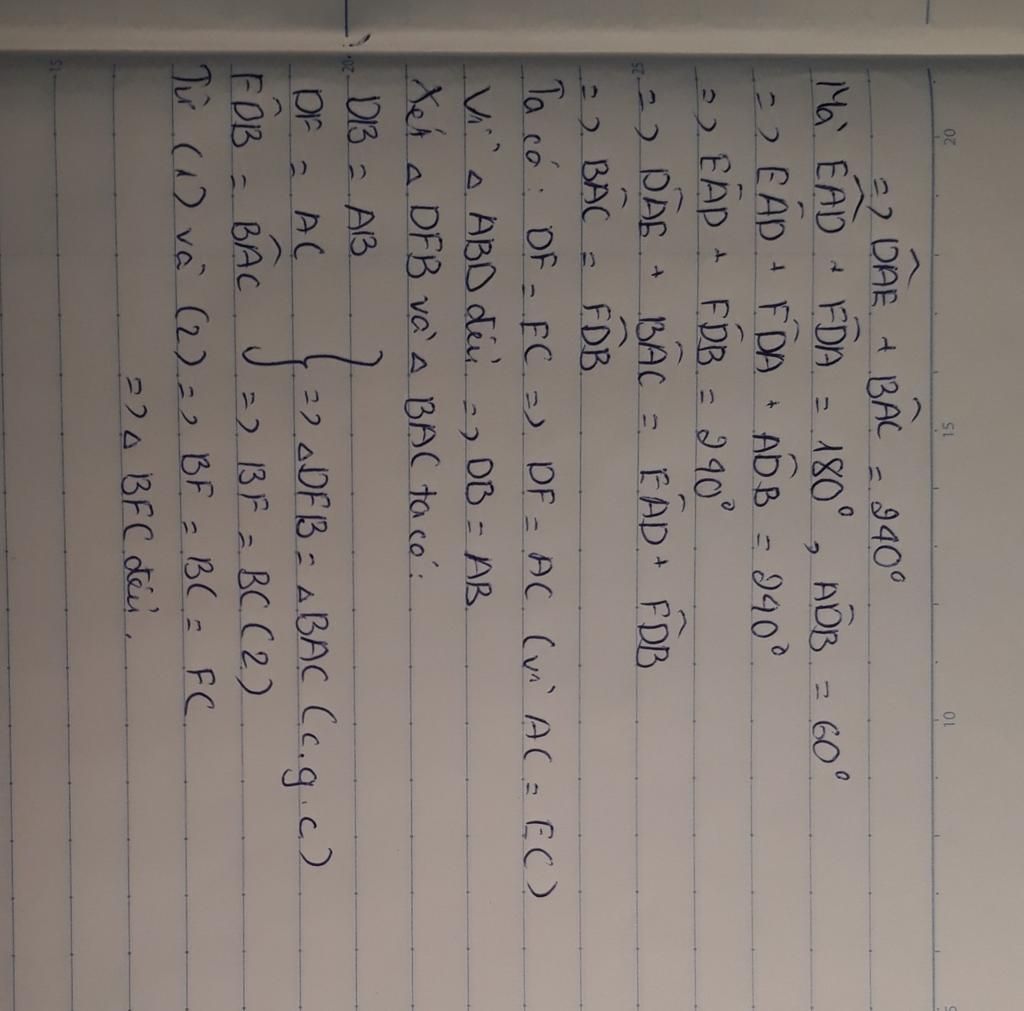 => D̂AE + B̂AC = 240°
Mà ÊAD + F̂DA = 180°, ÂDB = 60°
=> ÊAD + F̂DA + ÂDB = 240°
=> ÊAD + F̂DB = 240°
=> D̂AE + B̂AC = ÊAD + F̂DB
=> B̂AC = F̂DB
Ta có: DF = EC => DF = AC (vì AC = EC)
Vì △ ABD đều => DB = AB
Xét △ DFB và △ BAC ta có:
DB = AB
DF = AC } => △DFB = △BAC (c.g.c)
F̂DB = B̂AC => BF = BC (2)
Từ (1) và (2) => BF = BC = FC
=> △ BFC đều.
20
15
10
25
20
15